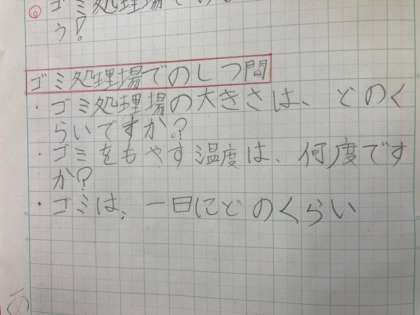 ⑥ ゴミ処理場で
う!
ゴミ処理場でのしつ問
・ゴミ処理場の大きさは、どのく
らいですか?
・ゴミをもやす温度は、何度です
か?
・ゴミは、一日にどのくらい